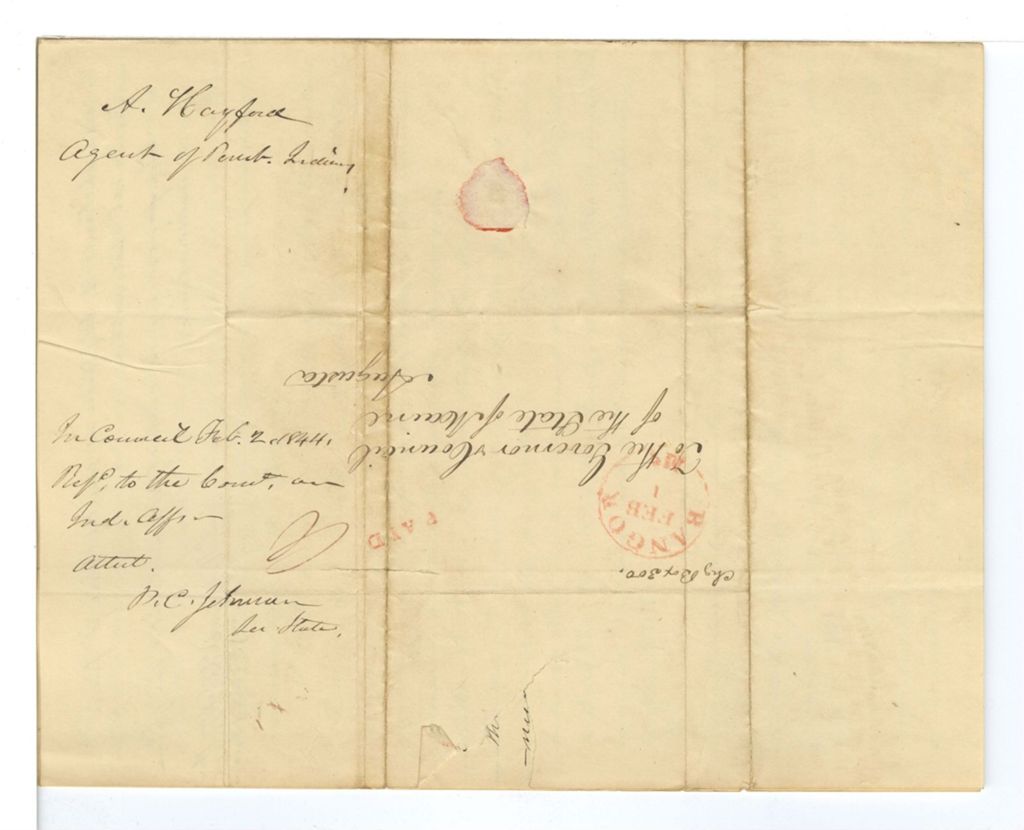 A. Hayford
Agent of Penob. Indians
In Council Feb. 2d 1844.
Refd, to the Comt, on
Ind. Affrs
Attest.
P. C. Johnson
Sec State,
To the Governor & Council
of the State of Maine
Augusta
BANGOR
FEB
1
PAID
Chg Box 300.